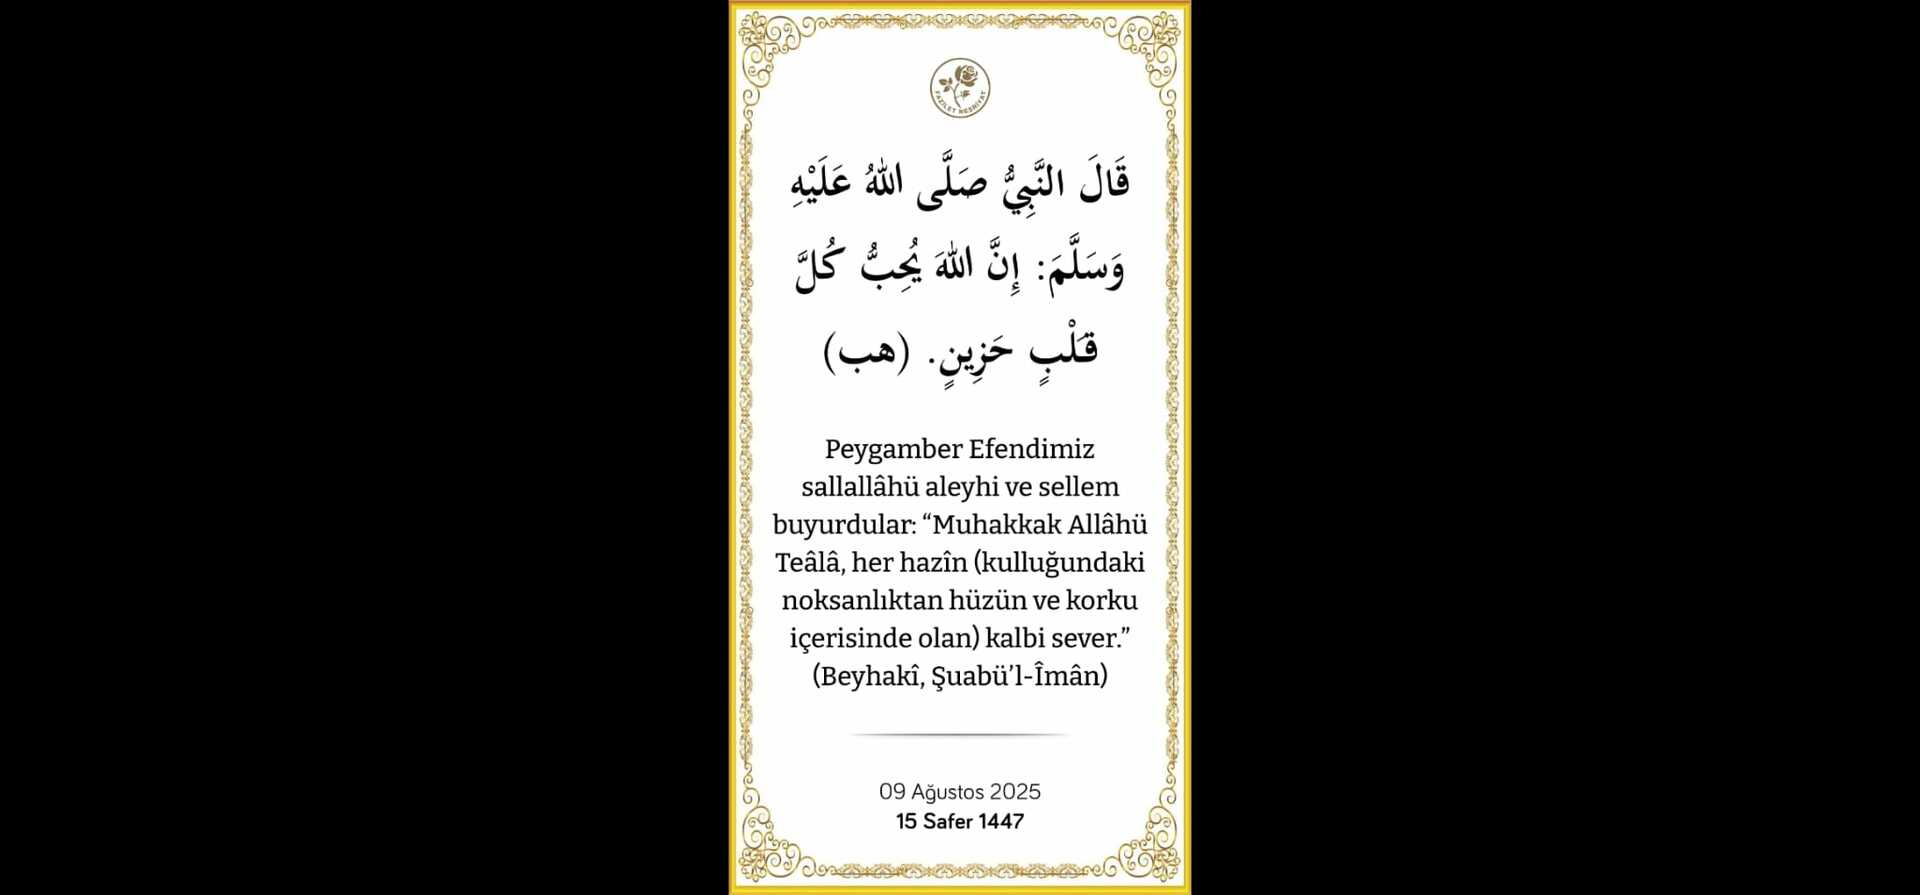 FAZİLET NEŞRİYAT
قَالَ النَّبِيُّ صَلَّى اللهُ عَلَيْهِ
وَسَلَّمَ: إِنَّ اللهَ يُحِبُّ كُلَّ
قَلْبٍ حَزِينٍ. (هب)
Peygamber Efendimiz
sallallâhü aleyhi ve sellem
buyurdular: “Muhakkak Allâhü
Teâlâ, her hazîn (kulluğundaki
noksanlıktan hüzün ve korku
içerisinde olan) kalbi sever.”
(Beyhakî, Şuabü’l-Îmân)
09 Ağustos 2025
15 Safer 1447